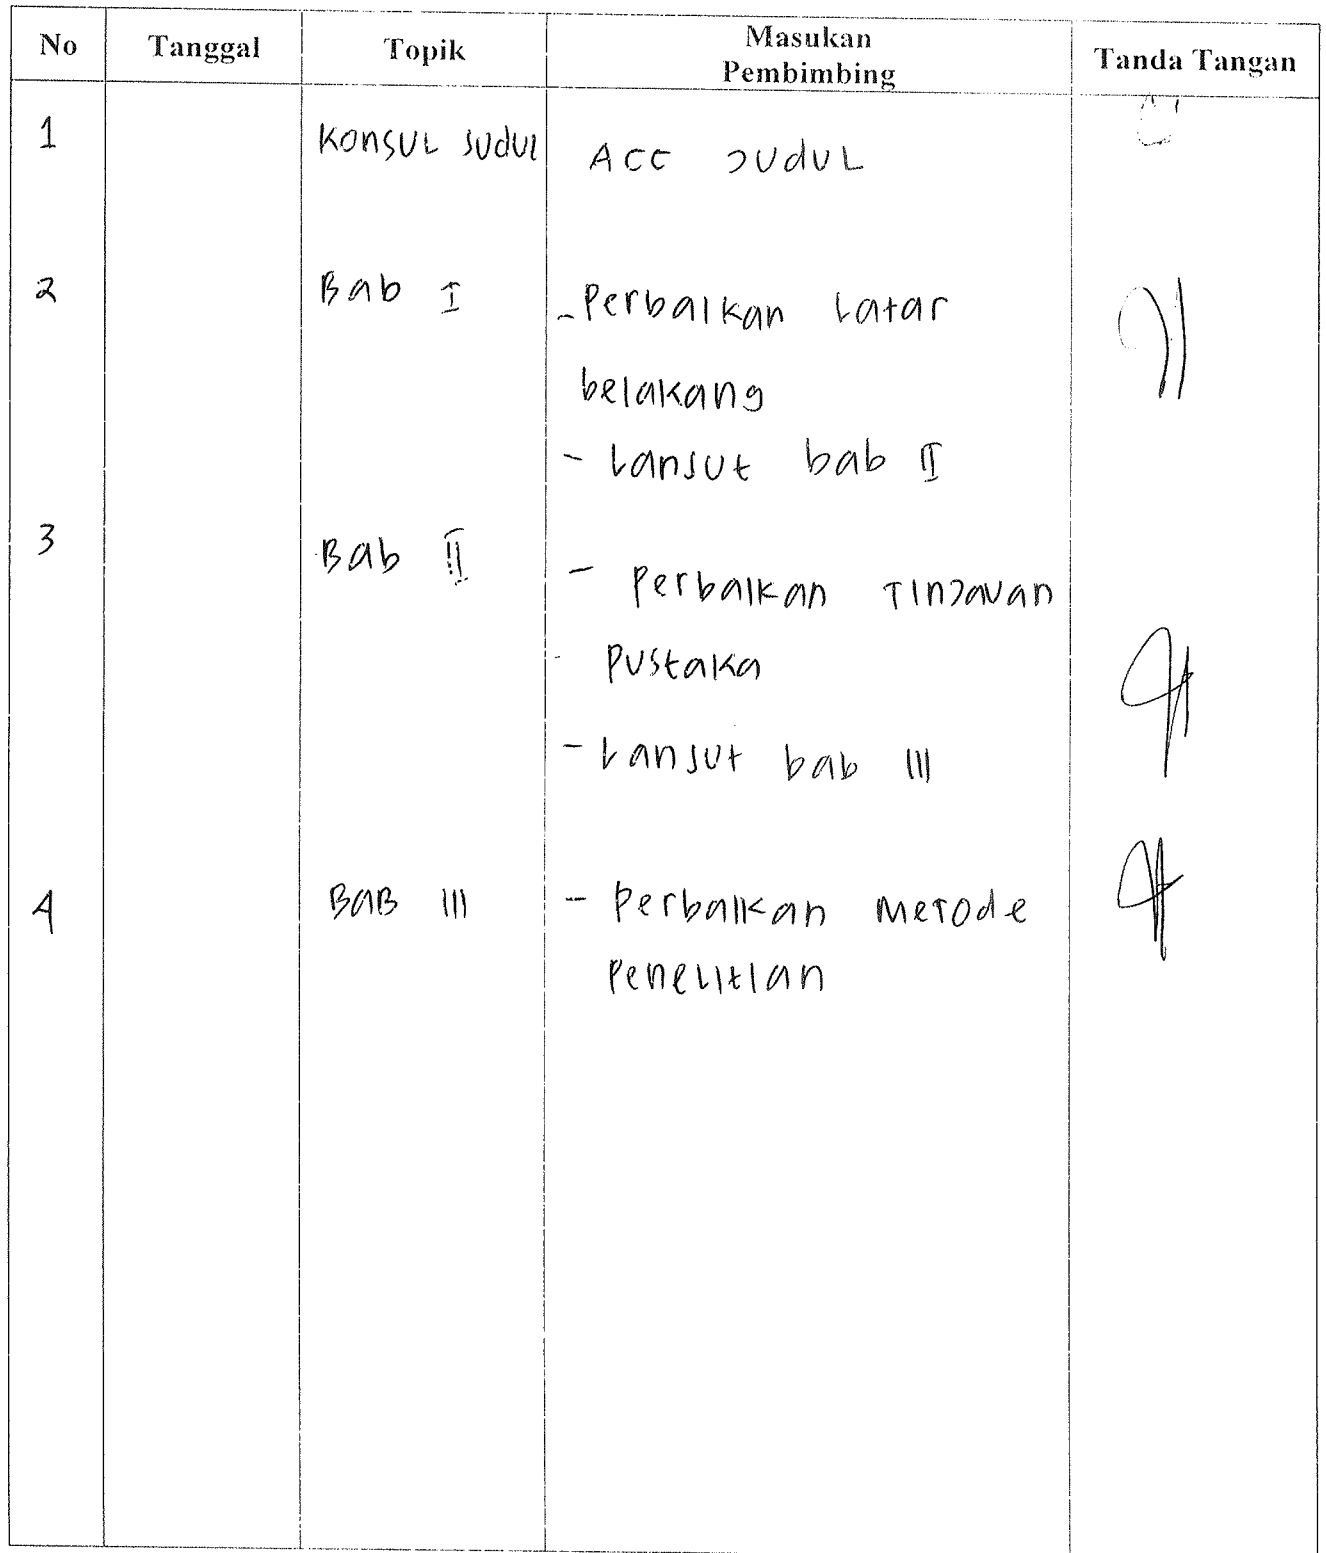 No Tanggal Topik Masukan Pembimbing Tanda Tangan
1 Konsul Judul ACC Judul
2 Bab I - Perbaikan Latar
belakang
- Lanjut bab II
3 Bab II - Perbaikan Tinjauan
Pustaka
- Lanjut bab III
4 BAB III - Perbaikan Metode
Penelitian